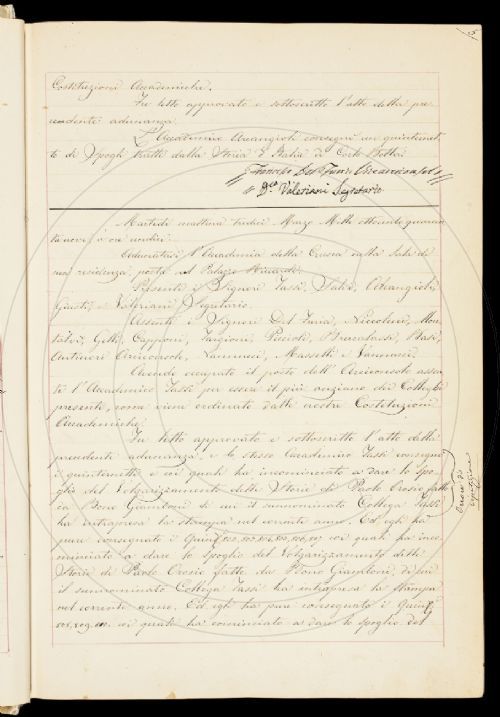 Costituzioni Accademiche.
Fu letto approvato e sottoscritto l'atto della pre-
cedente adunanza.
L'Accademico Arcangioli consegnò un quinternet-
to di Spogli tratti dalla Storia d'Italia di Carlo Botta.
Francesco Del Furia Arciconsolo
Dre Valeriani Segretario
Martedì mattina tredici Marzo Mille ottocento quaran-
ta nove a ore undici.
Adunatasi l'Accademia della Crusca nella Sala di
sua residenza posta nel Palazzo Riccardi.
Presenti i Signori Tassi, Salvi, Arcangioli,
Giusti, e Valeriani Segretario.
Assenti i Signori Del Furia, Niccolini, Mon-
talvi, Gelli, Capponi, Targioni, Puccioli, Brucalassi, Basi,
Antinori Arciconsolo, Nannucci, Masselli e Vannucci.
Avendo occupato il posto dell'Arciconsolo assen-
te l'Accademico Tassi per essere il più anziano dei Colleghi
presenti, come viene ordinato dalle nostre Costituzioni
Accademiche.
Fu letto approvato e sottoscritto l'atto della
precedente adunanza, e lo stesso Accademico Tassi consegnò
i quinternetti coi quali ha incominciato a dare lo Spo-
glio del Volgarizzamento delle Storie di Paolo Orosio fatto
da Bono Giamboni di cui il summominato Collega Tassi
ha intrapresa la stampa nel corrente anno. Ed egli ha
pure consegnato i Quint. coi quali ha inco-
minciato a dare lo Spoglio del Volgarizzamento delle
Storie di Paolo Orosio fatto da Bono Giamboni, di cui
il summominato Collega Tassi ha intrapresa la stampa
nel corrente anno. Ed egli ha pure consegnato i Quint.
coi quali ha cominciato a dare lo Spoglio del